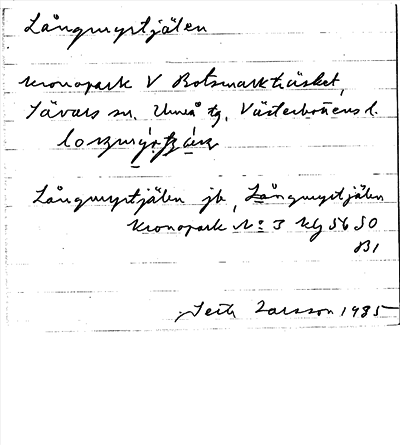 Långmyrtjälen
Kronopark V Botsmarkträsket,
Sävars sn. Umeå tg. Västerbottens l.
Långmyrtjälen jb, Långmyrtjälen
kronopark No 3 Kbg 56 50
B1
Larsson 1935